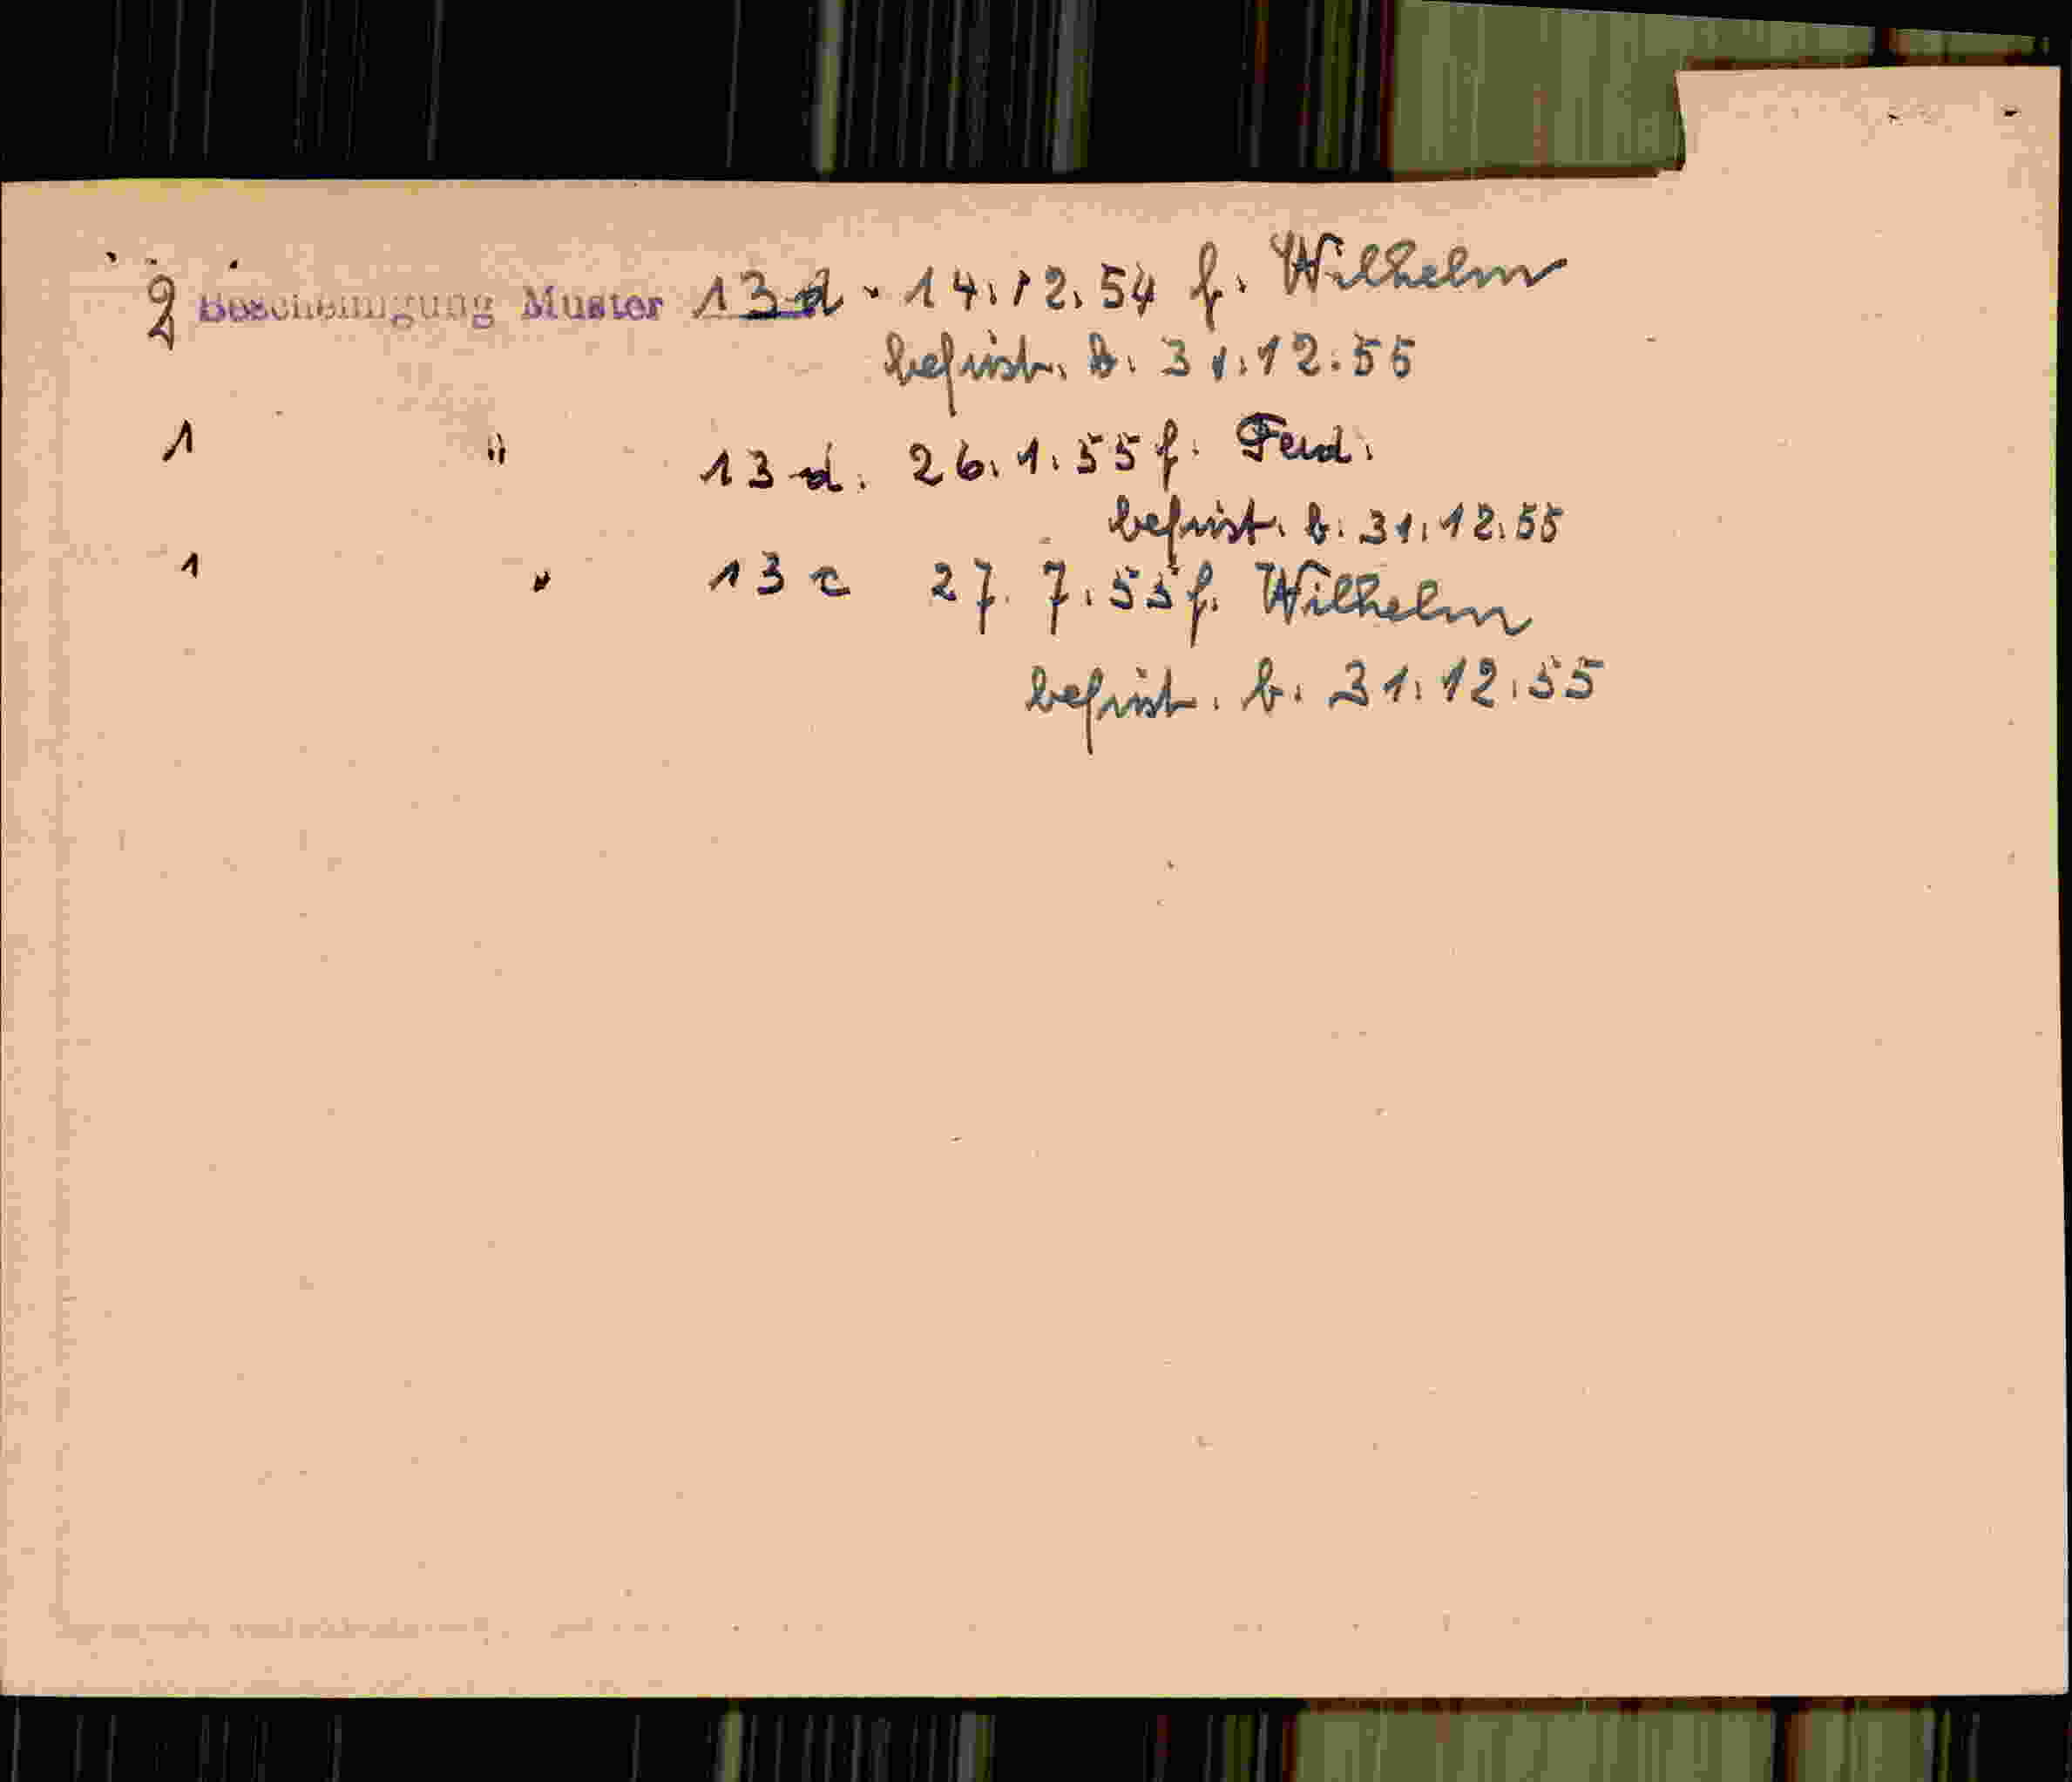 2 Bescheinigung Muster 13 d. 14.12.54 f. Wilhelm
befrist. b. 31.12.55
1 " 13 d. 26.1.55 f. Ferd.
befrist. b. 31.12.55
1 " 13 c 27.7.55 f. Wilhelm
befrist. b. 31.12.55